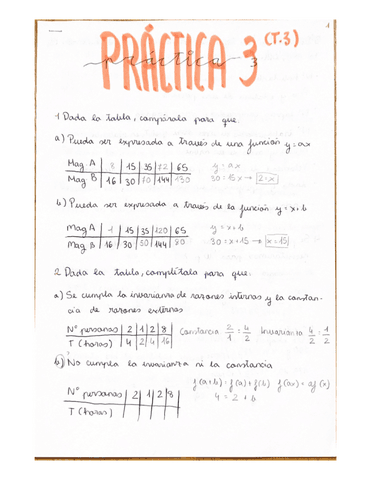 1
PRÁCTICA 3 (T.3)
práctica 3
1 Dada la tabla, complétala para que:
a) Pueda ser expresada a través de una función y=ax
Mag A | 8 | 15 | 35 | 72 | 65 y=ax
Mag B | 16 | 30 | 70 | 144 | 130 30=15x → 2=x
b) Pueda ser expresada a través de la función y=x+b
Mag A | 1 | 15 | 35 | 120 | 65 y=x+b
Mag B | 16 | 30 | 50 | 144 | 80 30=x+15 → x=15
2. Dada la tabla, complétala para que:
a) Se cumpla la invarianza de razones internas y la constan-
cia de razones externas
Nº personas | 2 | 1 | 2 | 8 Constancia: 2/1 = 4/2 Invarianza 4/2 = 1/2
T (horas) | 4 | 2 | 4 | 16
b) No cumpla la invarianza ni la constancia
f(a+b)=f(a)+f(b) f(ax)=af(x)
Nº personas | 2 | 1 | 2 | 8 4=2+b
T (horas)